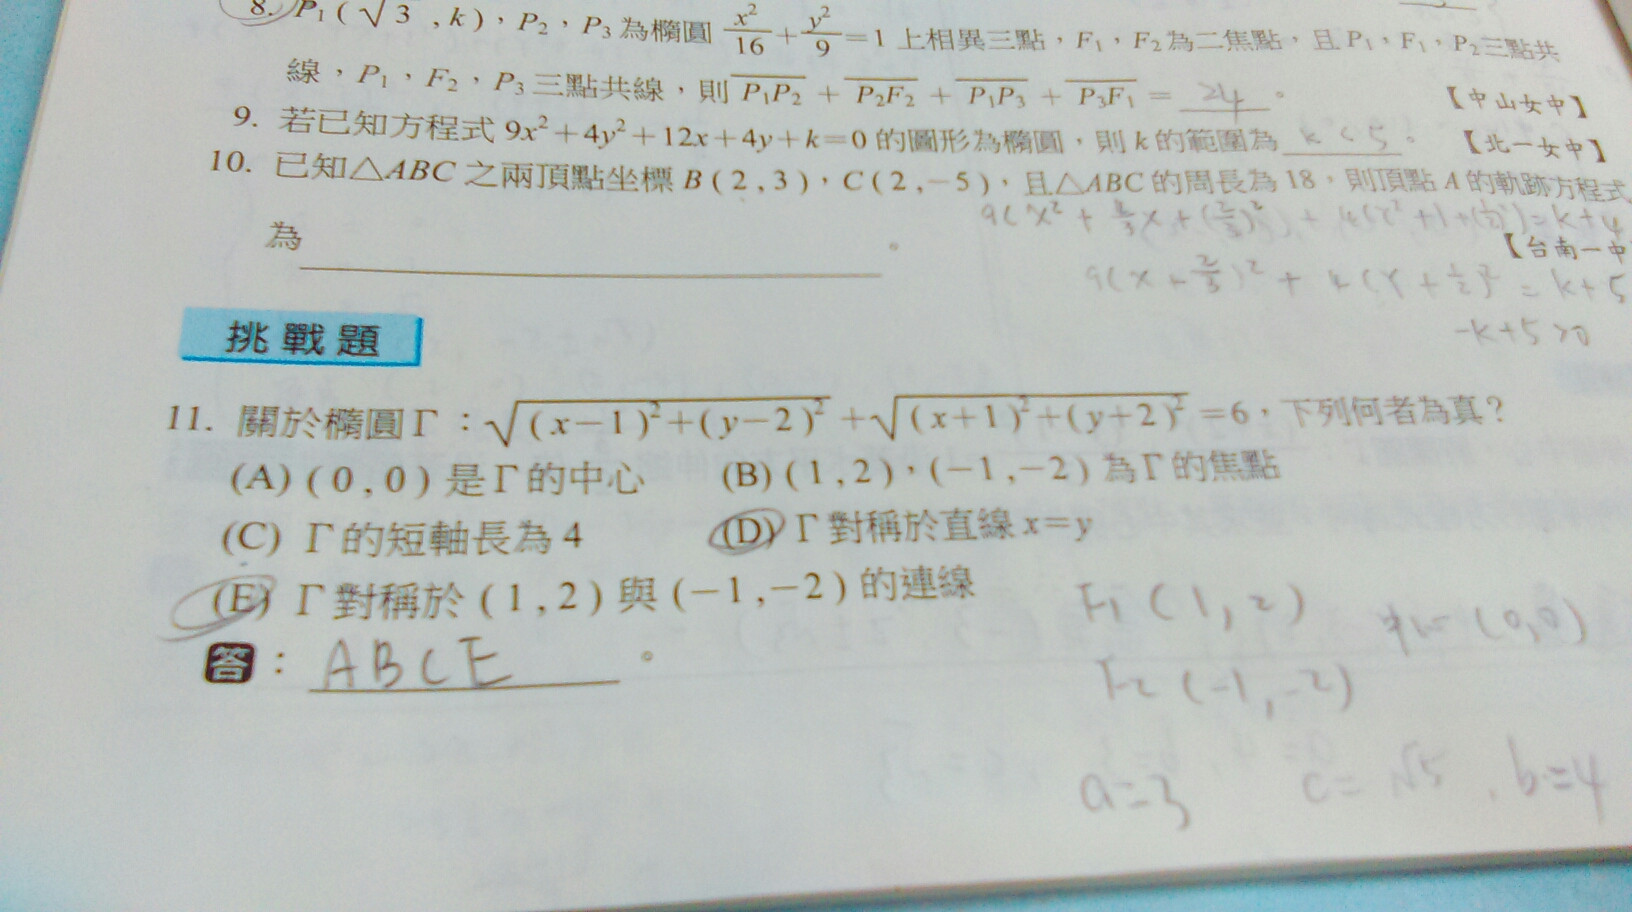 8. P₁(√3,k),P₂,P₃為橢圓 x²/16+y²/9=1 上相異三點,F₁,F₂為二焦點,且P₁,F₁,P₂三點共
線,P₁,F₂,P₃三點共線,則 P₁P₂ + P₂F₂ + P₁P₃ + P₃F₁ = 24 。【中山女中】
9. 若已知方程式 9x²+4y²+12x+4y+k=0 的圖形為橢圓,則 k 的範圍為 k<5 。【北一女中】
10. 已知△ABC 之兩頂點坐標 B(2,3),C(2,-5),且△ABC 的周長為 18,則頂點 A 的軌跡方程式
=k+4
為 。【台南一中
9(x+2/3)²+4(y+1/2)²=k+5
-k+5>0
挑戰題
11. 關於橢圓Γ:√(x-1)²+(y-2)² +√(x+1)²+(y+2)² =6,下列何者為真?
(A)(0,0)是Γ的中心 (B)(1,2),(-1,-2)為Γ的焦點
(C) Γ的短軸長為4 (D) Γ對稱於直線 x=y
(E) Γ對稱於(1,2)與(-1,-2)的連線
F₁(1,2) 中心(0,0)
答: ABCE 。
F₂(-1,-2)
a=3 c=√5 , b=4